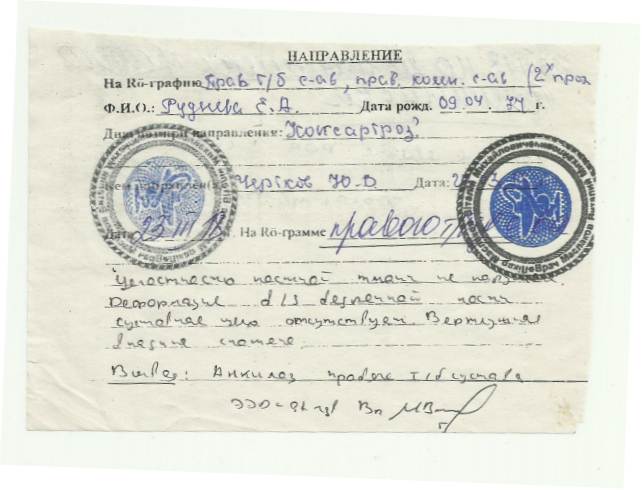 НАПРАВЛЕНИЕ
На Rö-графию прав т/б с-ав, прав. колен. с-ав (2х проз
Ф.И.О.: Руднева Е.А. Дата рожд. 09.04.77 г.
Диагноз при направлении: Коксартроз?
Кем направлен Чертков Ю.В Дата:
Дата 23 III 18 г. На Rö-грамме правого т/б
Целостность костной ткани не наруш
Деформация d/3 бедренной кости
суставная щель отсутствует. Вертлужная
впадина
Вывод: Анкилоз правого т/б сустава
ЭЭД- Вр